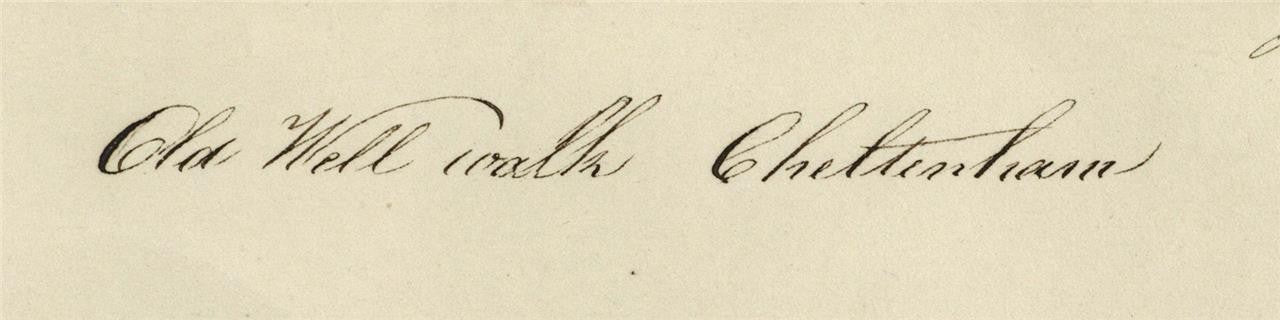 Old Well walk Cheltenham